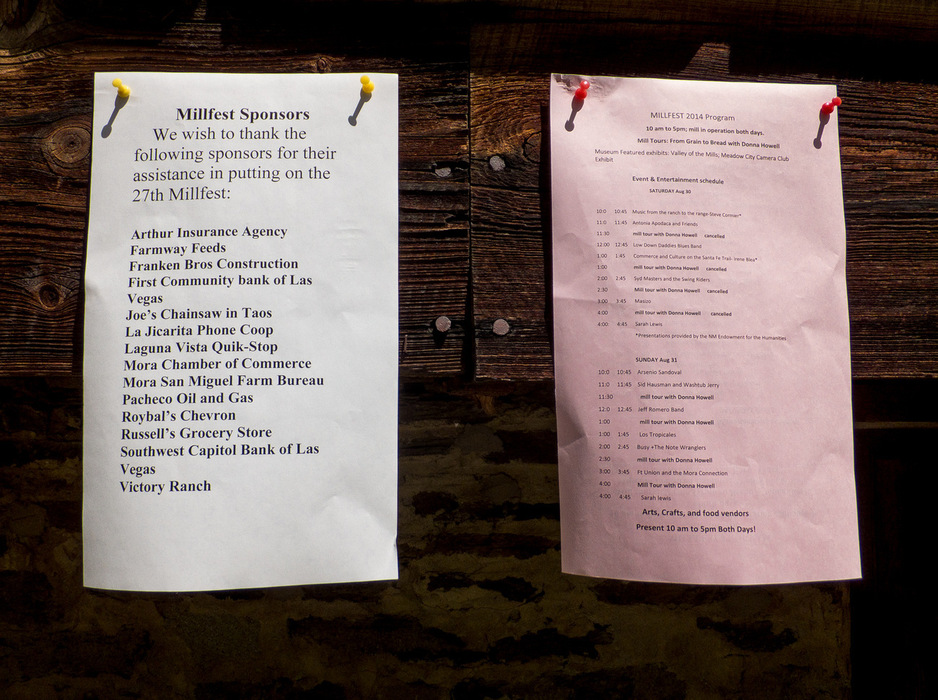 Millfest Sponsors
We wish to thank the
following sponsors for their
assistance in putting on the
27th Millfest:
Arthur Insurance Agency
Farmway Feeds
Franken Bros Construction
First Community bank of Las
Vegas
Joe's Chainsaw in Taos
La Jicarita Phone Coop
Laguna Vista Quik-Stop
Mora Chamber of Commerce
Mora San Miguel Farm Bureau
Pacheco Oil and Gas
Roybal's Chevron
Russell's Grocery Store
Southwest Capitol Bank of Las
Vegas
Victory Ranch
MILLFEST 2014 Program
10 am to 5pm; mill in operation both days.
Mill Tours: From Grain to Bread with Donna Howell
Museum Featured exhibits: Valley of the Mills, Meadow City Camera Club
Exhibit
Event & Entertainment schedule
SATURDAY Aug 30
10:0 10:45 Music from the ranch to the range-Steve Cormier*
11:0 11:45 Antonia Apodaca and Friends
11:30 mill tour with Donna Howell cancelled
12:00 12:45 Low Down Daddies Blues Band
1:00 1:45 Commerce and Culture on the Santa Fe Trail- Irene Blea*
1:00 mill tour with Donna Howell cancelled
2:00 2:45 Syd Masters and the Swing Riders
2:30 Mill tour with Donna Howell cancelled
3:00 3:45 Maxico
4:00 mill tour with Donna Howell cancelled
4:00 4:45 Sarah Lewis
*Presentations provided by the NM Endowment for the Humanities
SUNDAY Aug 31
10:0 10:45 Arsenio Sandoval
11:0 11:45 Sid Hausman and Washtub Jerry
11:30 mill tour with Donna Howell
12:0 12:45 Jeff Romero Band
1:00 mill tour with Donna Howell
1:00 1:45 Los Tropicales
2:00 2:45 Busy +The Note Wranglers
2:30 mill tour with Donna Howell
3:00 3:45 Ft Union and the Mora Connection
4:00 Mill Tour with Donna Howell
4:00 4:45 Sarah lewis
Arts, Crafts, and food vendors
Present 10 am to 5pm Both Days!